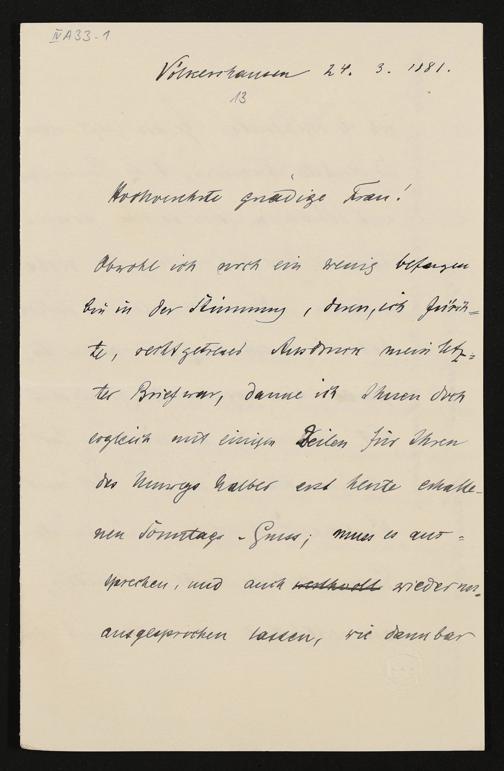 IV A 33-1
Völkershausen 24. 3. 1881.
13
Hochverehrte gnädige Frau!
Obwohl ich noch ein wenig befangen
bin in der Stimmung, deren, ich fürch=
te, recht getreuer Ausdruck mein letz=
ter Brief war, danke ich Ihnen doch
sogleich mit einigen Zeilen für Ihren
des Umwegs halber erst heute erhalte-
nen Sonntags-Gruss; muss es aus=
sprechen, und auch wieder
ausgesprochen lassen, wie dankbar